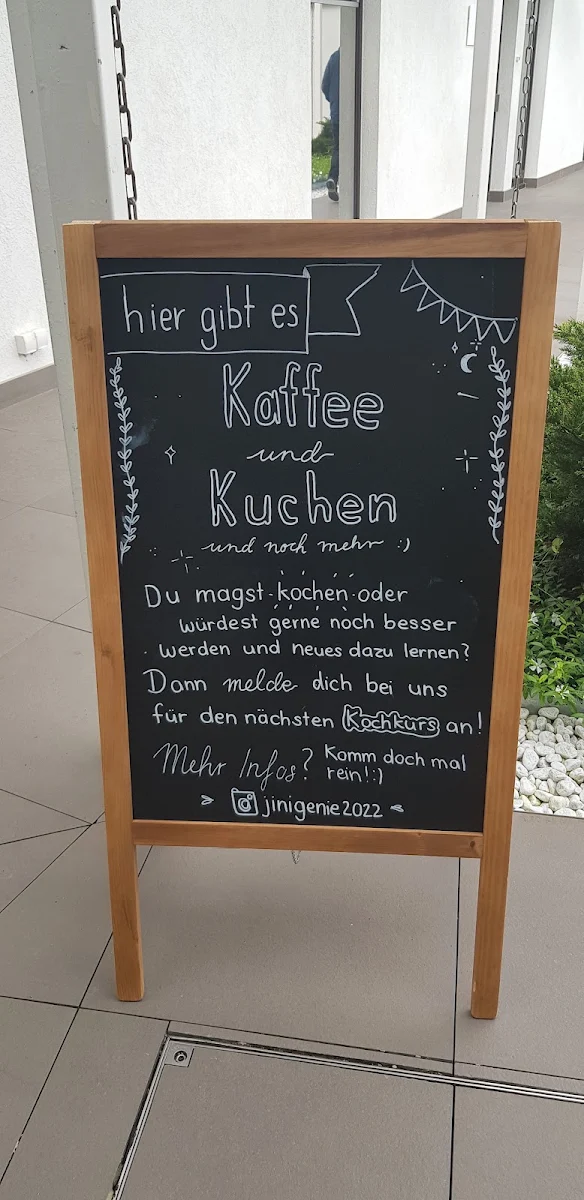 hier gibt es
Kaffee
und
Kuchen
und noch mehr :)
Du magst kochen oder
würdest gerne noch besser
werden und neues dazu lernen?
Dann melde dich bei uns
für den nächsten Kochkurs an!
Mehr Infos? Komm doch mal
rein! :)
jinigenie2022